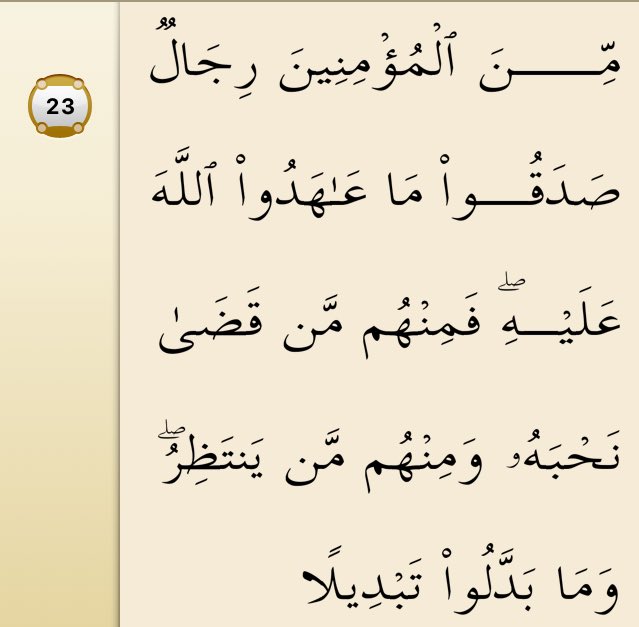 23
مِّـــــنَ ٱلْمُؤْمِنِينَ رِجَالٌ
صَدَقُـــوا۟ مَا عَـٰهَدُوا۟ ٱللَّهَ
عَلَيْـــهِ ۖ فَمِنْهُم مَّن قَضَىٰ
نَحْبَهُۥ وَمِنْهُم مَّن يَنتَظِرُ ۖ
وَمَا بَدَّلُوا۟ تَبْدِيلًا